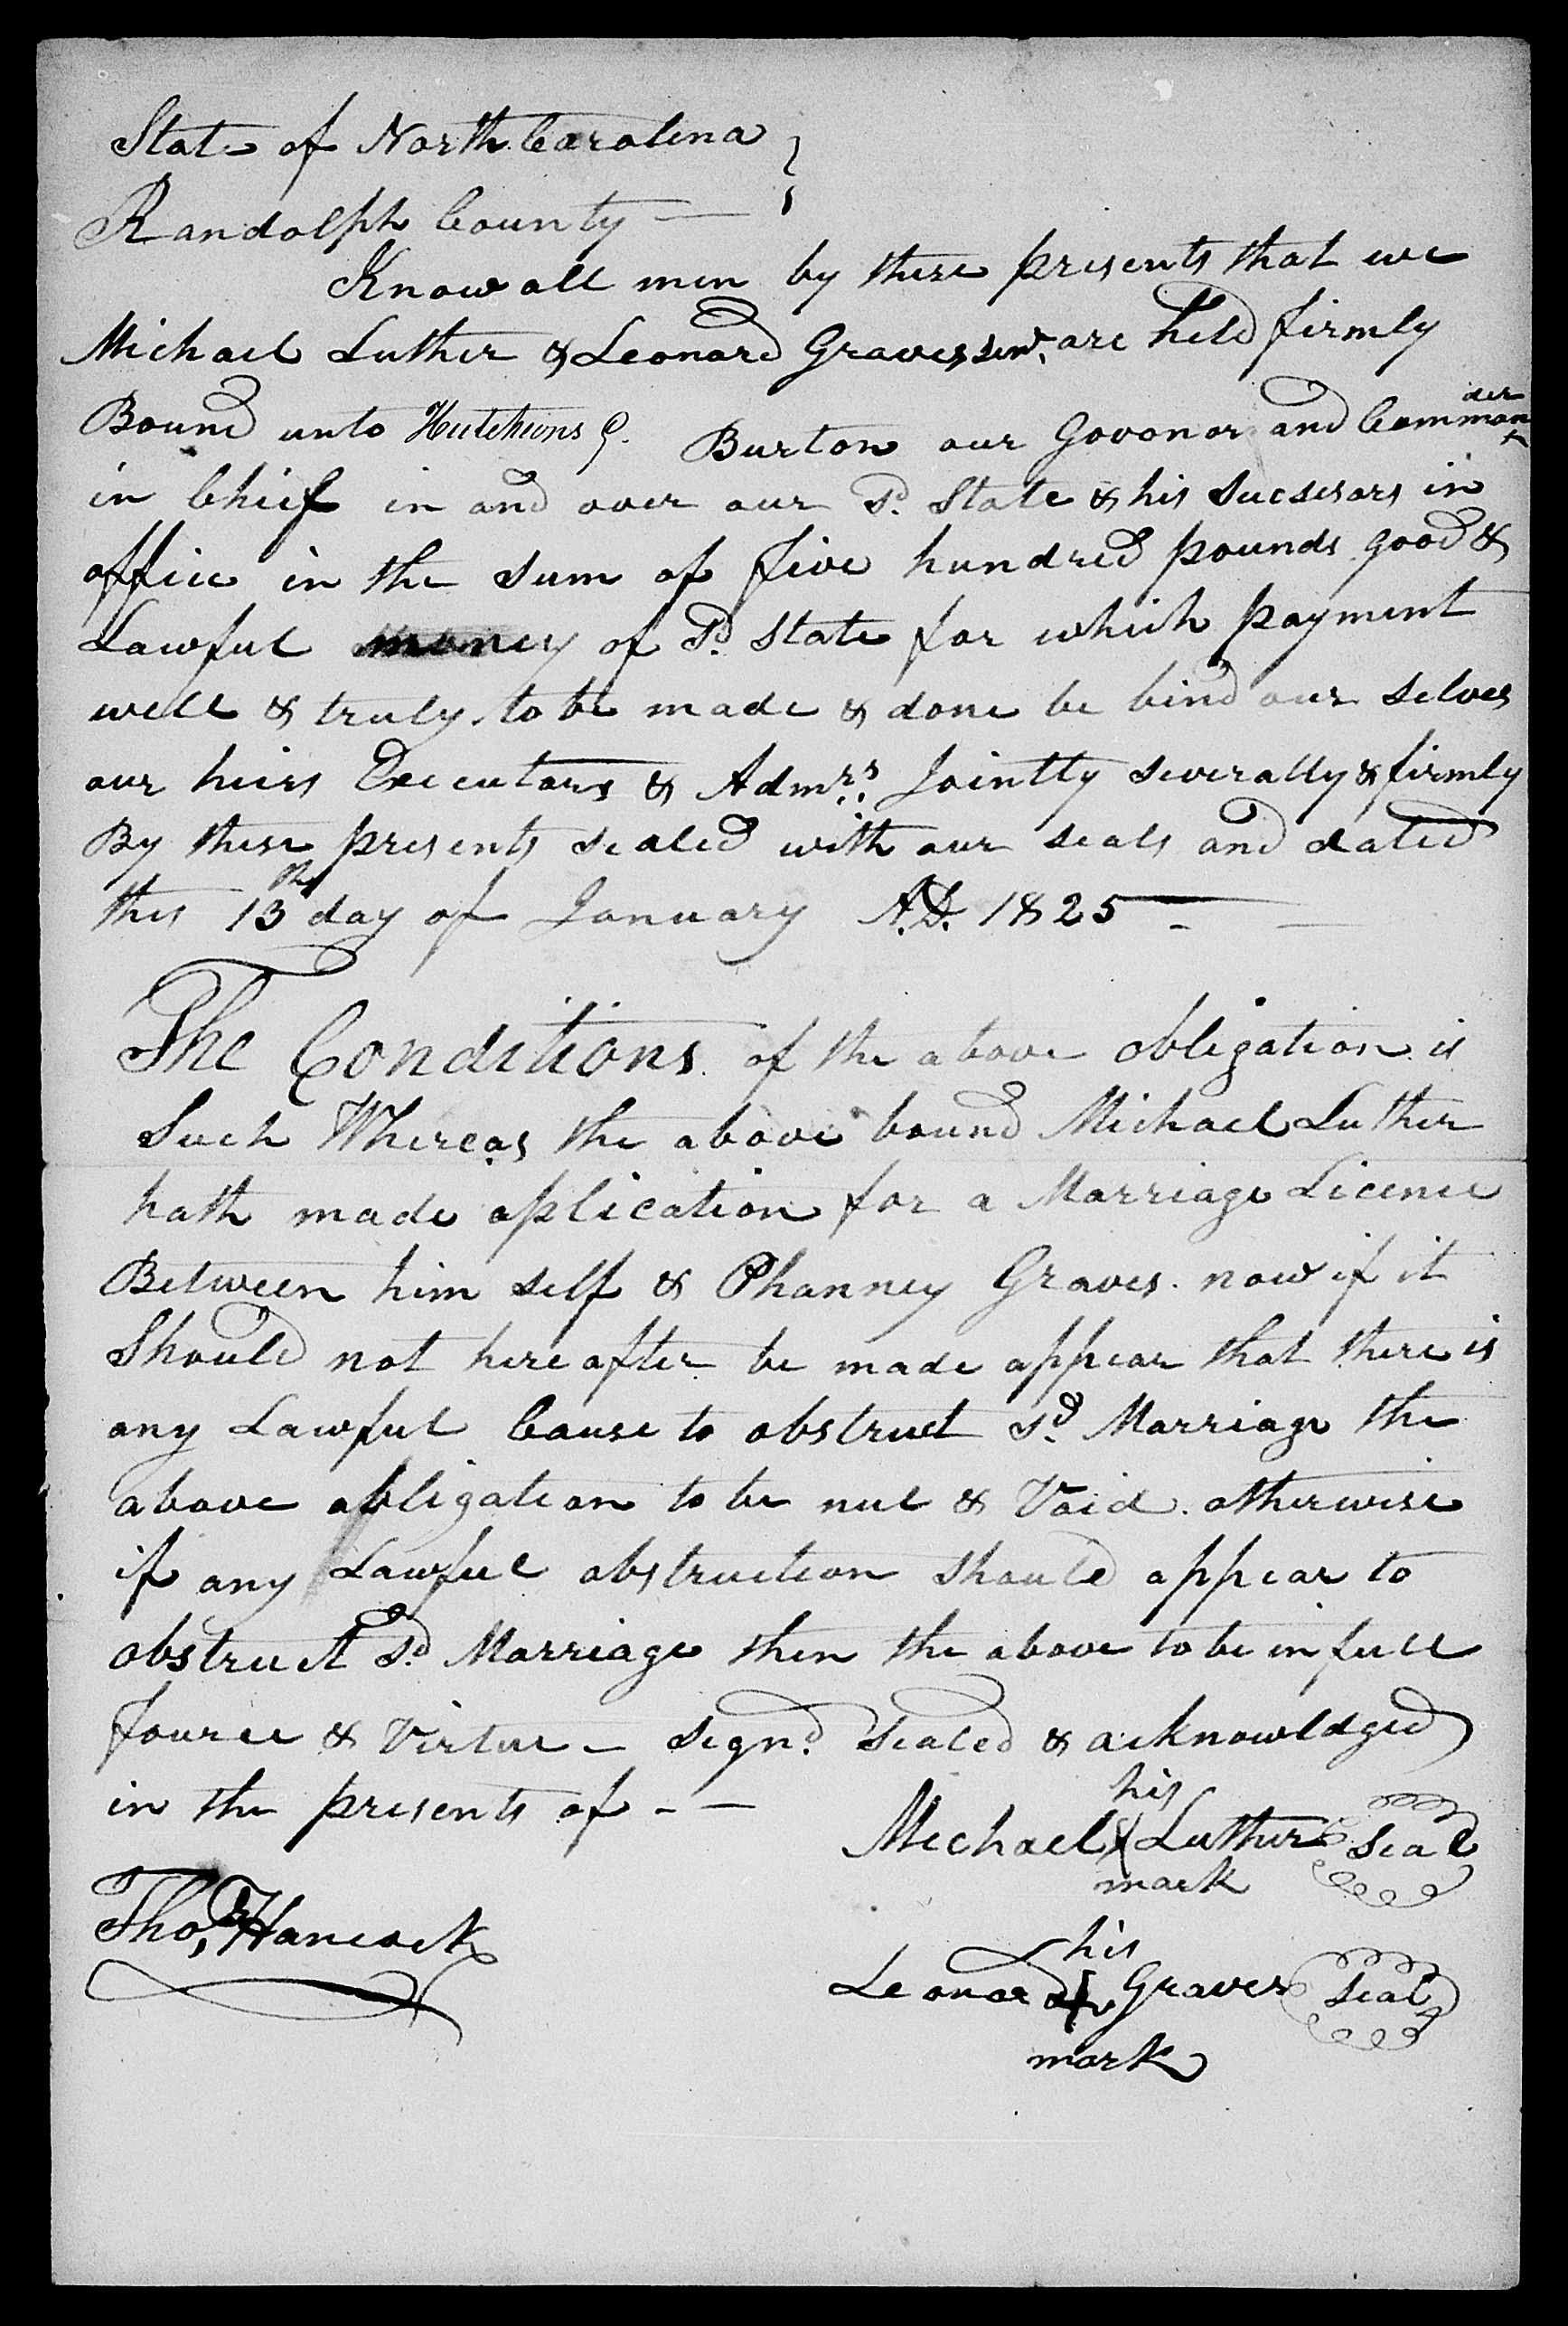 State of North Carolina }
Randolph County —
Know all men by these presents that we
Michael Luther & Leonard Graves senr. are held firmly
Bound unto Hutchions G. Burton our Govonor and Comman^der
in Chief in and over our Sd. State & his Sucsesors in
office in the Sum of five hundred pounds good &
Lawful money of Sd. State for which payment
well & truly to be made & done be bind our selves
our heirs Executors & Admrs. Jointly severally & firmly
By these presents sealed with our seals and dated
this 13th day of January A.D. 1825 —
The Conditions of the above obligation is
Such Whereas the above bound Michael Luther
hath made aplication for a Marriage Licence
Between him self & Phanney Graves. now if it
Should not here after be made appear that there is
any Lawful Cause to obstruct sd. Marriage the
above obligation to be nul & Void. otherwise
if any Lawful obstruction should appear to
obstruct sd. Marriage then the above to be in full
fource & Virtue — Signd. Sealed & acknowldged
in the presents of - —
his
Michael X Luther Seal
mark
Thos. Hancock
his
Leonard + Graves Seal
mark